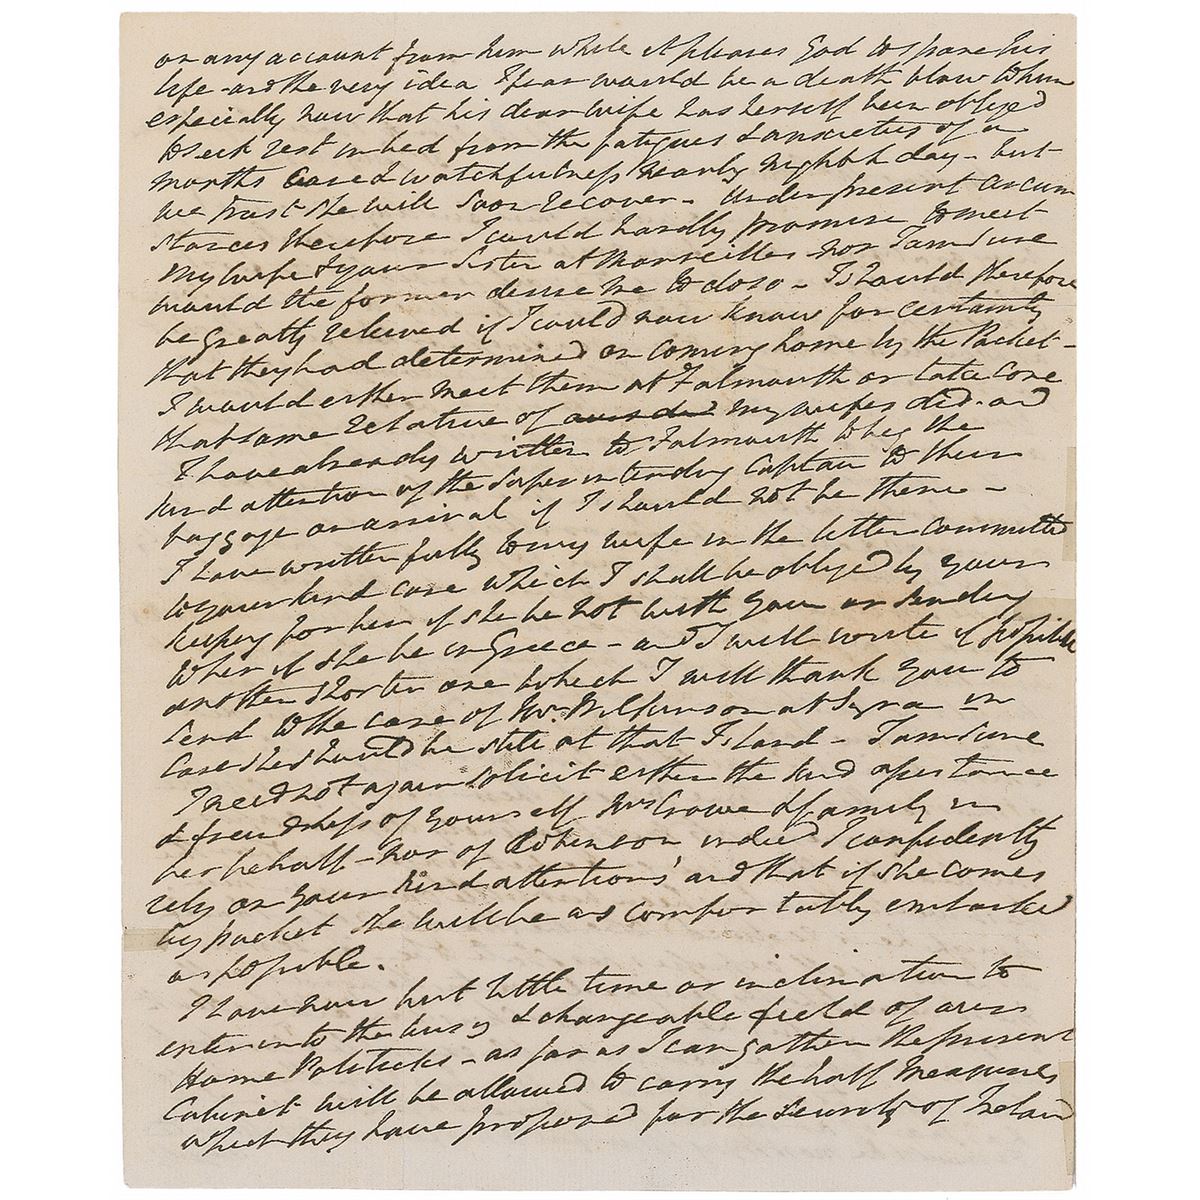 on any account from him while it pleases God to spare his
life - and the very idea I fear would be a death blow to him
especially now that his dear wife has herself been obliged
to seek rest in bed from the fatigues & anxieties of a
months and watchfulness nearly night & day - but
we trust she will soon recover - Under present circum
stances therefore I could hardly promise to meet
my wife & your Sister at Marseilles nor I am Sure
would the former desire me to do so - I should therefore
be greatly relieved if I could now know for certainty
that they had determined on coming home by the Packet -
I would either meet them at Falmouth or take care
that some relative of my wifes did - and
I have already written to Falmouth to beg the
kind attention of the Superintending Captain to their
baggage on arrival if I should not be there -
I have written fully to my wife in the letter committed
to your kind care which I shall be obliged by your
keeping for her if she be not with you or sending
when if she be in Greece - and I will write if possible
another shorter one which I will thank you to
send to the care of Mr. Wilkinson at Syra in
case she should be still at that Island - I am Sure
I need not again solicit either the kind assistance
& friendships of yourself Mrs Crowe & family in
her behalf - nor of Robinson indeed I confidently
rely on your kind attentions and that if she comes
by packet she will be as comfortably embarked
as possible.
I have now but little time or inclination to
enter into the busy & changeable field of our
Home Politicks - as far as I can gather the present
Cabinet will be allowed to carry the half measures
which they have proposed for the Security of Ireland